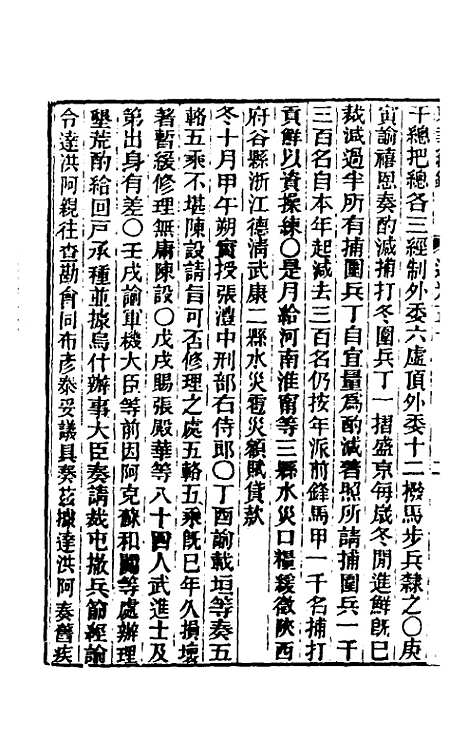 千總把總各三經制外委六虛頂外委十二撥馬步兵隸之〇庚
寅諭禧恩奏酌減捕打冬圍兵丁一摺盛京每歲冬閒進鮮旣已
裁減過半所有捕圍兵丁自宜量爲酌減著照所請捕圍兵一千
三百名自本年起減去三百名仍按年派前鋒馬甲一千名捕打
貢鮮以資操練〇是月給河南淮甯等三縣水災口糧緩徵陝西
府谷縣浙江德淸武康二縣水災雹災額賦貸款
冬十月甲午朔實授張澧中刑部右侍郎〇丁酉諭載垣等奏五
輅五乘不堪陳設請旨可否修理之處五輅五乘旣已年久損壞
著暫緩修理無庸陳設〇戊戌賜張殿華等八十四人武進士及
第出身有差〇壬戌諭軍機大臣等前因阿克蘇和闐等處辦理
墾荒酌給回戶承種並據烏什辦事大臣奏請裁屯撤兵節經諭
令達洪阿親往查勘會同布彥泰妥議具奏茲據達洪阿奏舊疾